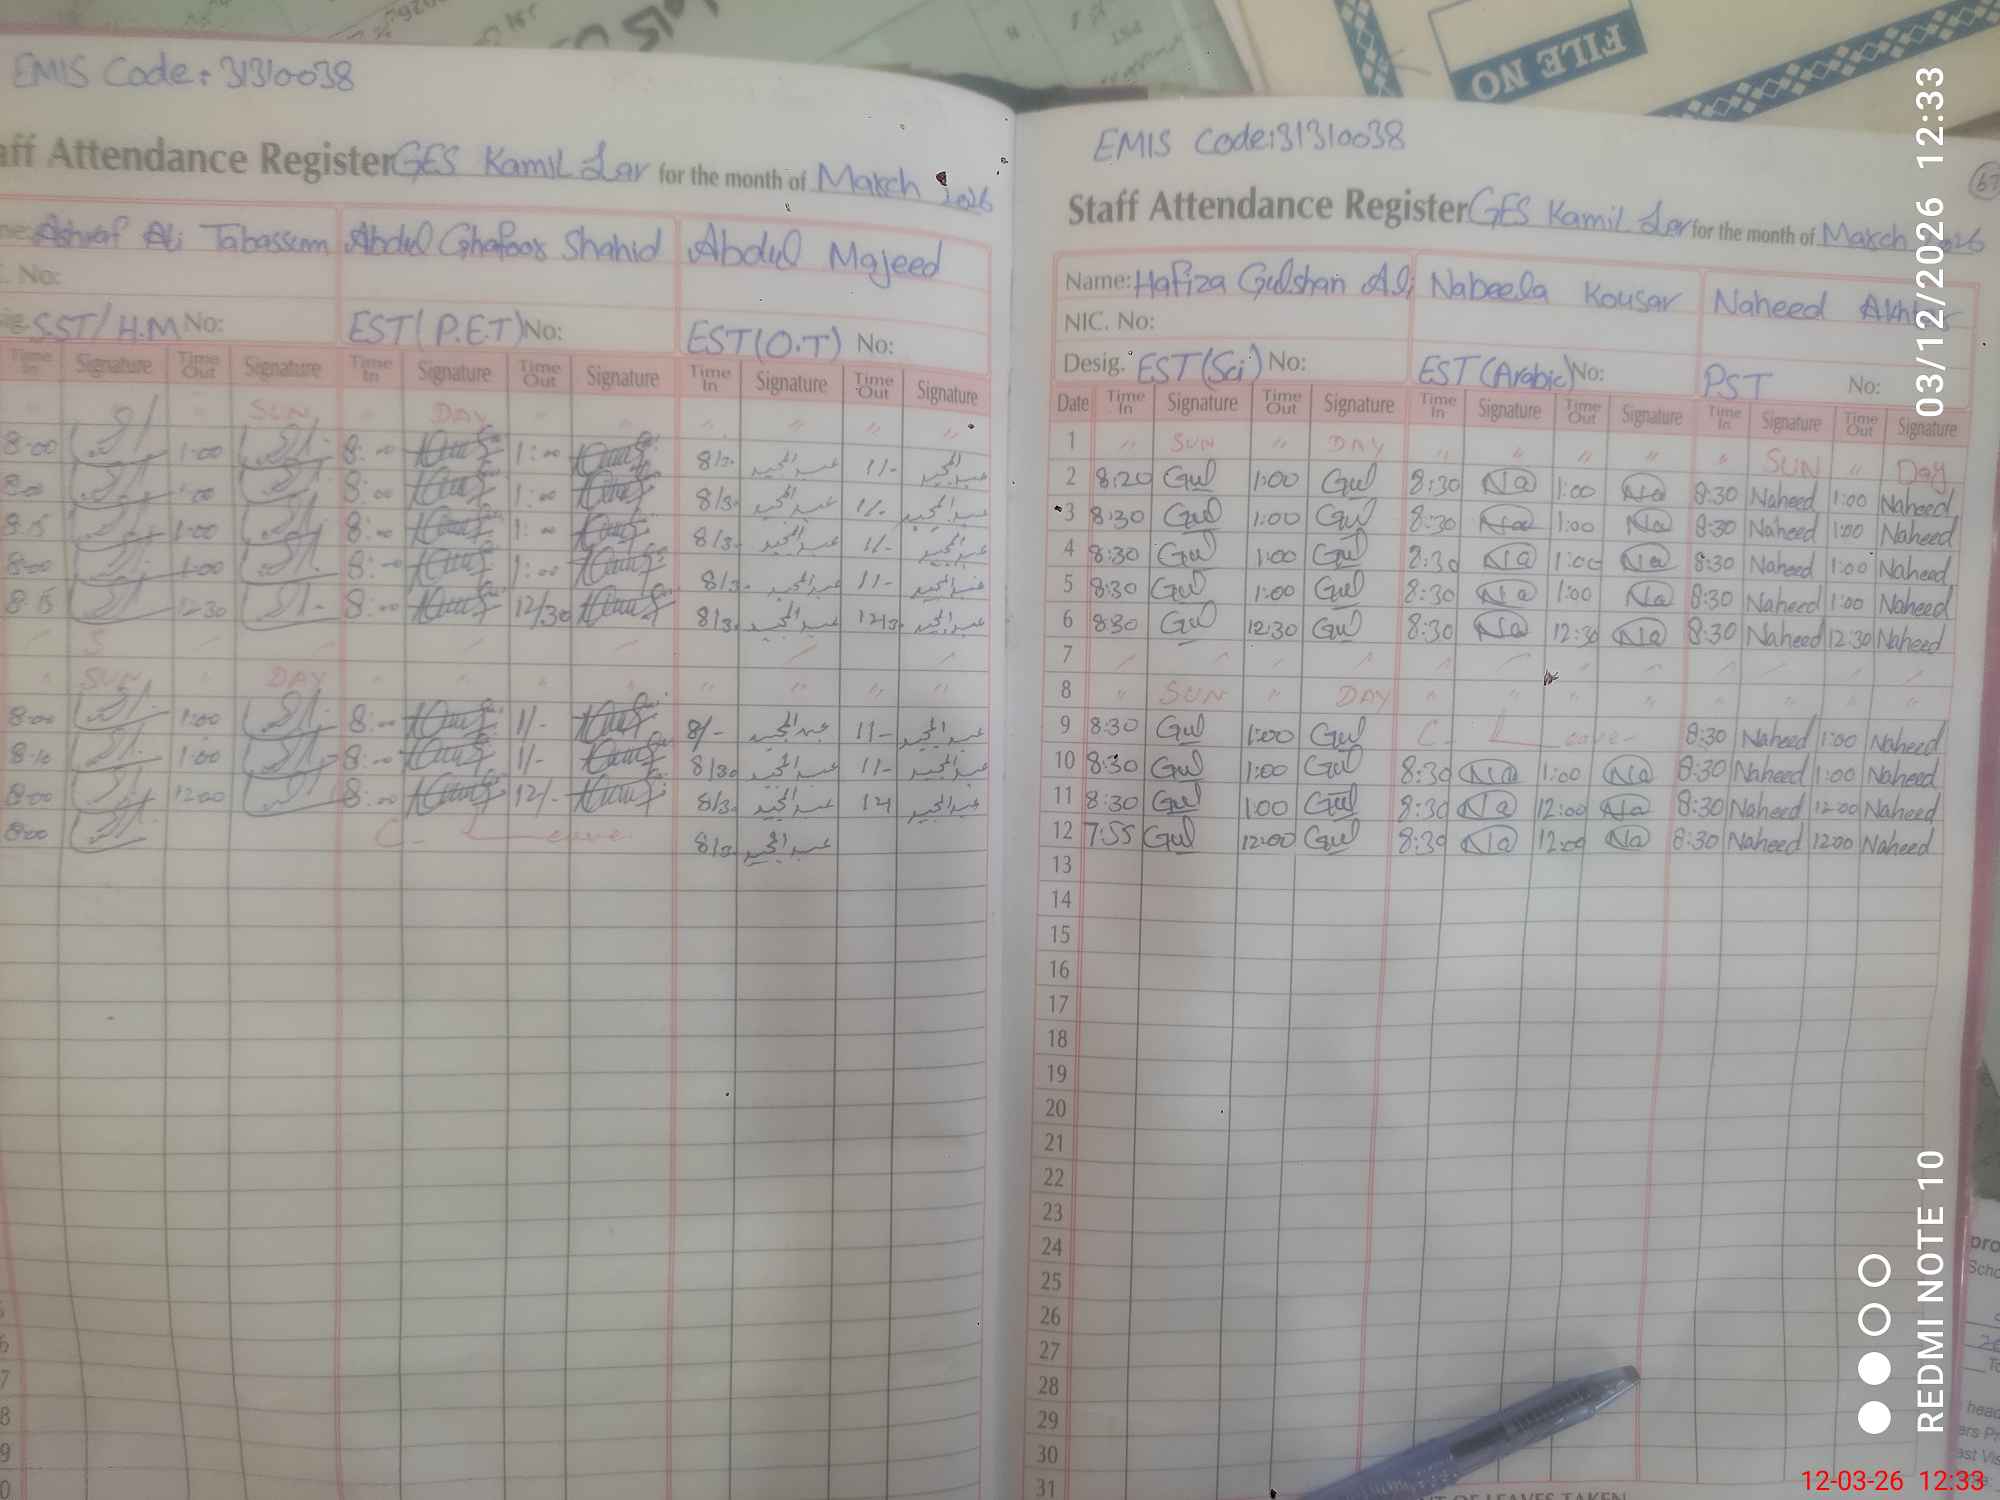 EMIS Code: 31310038
aff Attendance Register GES Kamil Lar for the month of March 2026
Ashraf Ali Tabassum Abdul Ghafoor Shahid Abdul Majeed
. No:
SST/H.M No: EST(P.E.T) No: EST(O.T) No:
Time In Signature Time Out Signature Time In Signature Time Out Signature Time In Signature Time Out Signature
" SUN " DAY " " " " " "
8:00 1:00 8:00 1:00 8/30 عبدالمجید 1/- عبدالمجید
1:00 8:00 1:00 8/30 عبدالمجید 1/- عبدالمجید
8:15 1:00 8:00 1:00 8/30 عبدالمجید 1/- عبدالمجید
8:00 1:00 8:00 1:00 8/30 عبدالمجید 1/- عبدالمجید
8:15 12:30 8:00 12/30 8/30 عبدالمجید 12/30 عبدالمجید
" SUN " DAY " " " " " " " "
8:00 1:00 8:00 1/- 8/- عبدالمجید 1/- عبدالمجید
8:10 1:00 8:00 1/- 8/30 عبدالمجید 1/- عبدالمجید
8:00 12:00 8:00 12/- 8/30 عبدالمجید 12/ عبدالمجید
8:00 C. Leave 8/30 عبدالمجید
EMIS Code: 31310038
67
Staff Attendance Register GES Kamil Lar for the month of March 2026
Name: Hafiza Gulshan Ali Nabeela Kousar Naheed Akhtar
NIC. No:
Desig. EST(Sci) No: EST(Arabic) No: PST No:
Date Time In Signature Time Out Signature Time In Signature Time Out Signature Time In Signature Time Out Signature
1 " SUN " DAY " " " " " SUN " Day
2 8:20 Gul 1:00 Gul 8:30 Na 1:00 Na 8:30 Naheed 1:00 Naheed
3 8:30 Gul 1:00 Gul 8:30 Na 1:00 Na 8:30 Naheed 1:00 Naheed
4 8:30 Gul 1:00 Gul 8:30 Na 1:00 Na 8:30 Naheed 1:00 Naheed
5 8:30 Gul 1:00 Gul 8:30 Na 1:00 Na 8:30 Naheed 1:00 Naheed
6 8:30 Gul 12:30 Gul 8:30 Na 12:30 Na 8:30 Naheed 12:30 Naheed
7
8 " SUN " DAY " " " " " " " "
9 8:30 Gul 1:00 Gul C. Leave 8:30 Naheed 1:00 Naheed
10 8:30 Gul 1:00 Gul 8:30 Na 1:00 Na 8:30 Naheed 1:00 Naheed
11 8:30 Gul 1:00 Gul 8:30 Na 12:00 Na 8:30 Naheed 12:00 Naheed
12 7:55 Gul 12:00 Gul 8:30 Na 12:00 Na 8:30 Naheed 12:00 Naheed
13
14
15
16
17
18
19
20
21
22
23
24
25
26
27
28
29
30
31
FILE NO
03/12/2026 12:33
REDMI NOTE 10
12-03-26 12:33